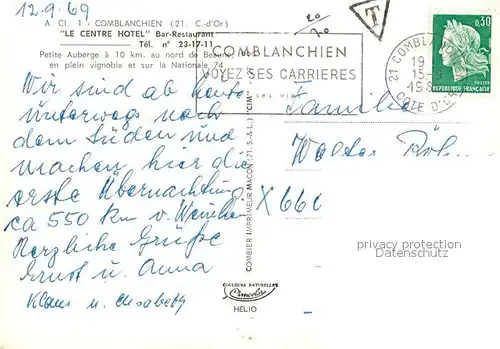 12.9.69
A Cl. 1 - COMBLANCHIEN (21. C.-d'Or)
"LE CENTRE HOTEL" Bar-Restaurant
Tél. n° 23-17-11
Petite Auberge à 10 km. au nord de Beaune,
en plein vignoble et sur la Nationale 74
Wir sind ab heute
unterwegs nach
dem Süden und
machen hier die
erste Übernachtung
ca 550 km v.
Herzliche Grüße
Ernst u. Anna
Klaus u. Elisabeth
COMBIER IMPRIMEUR MACON (71. S.-&-L.) "CIM"
COULEURS NATURELLES
Cimcolor
HÉLIO
T
20
COMBLANCHIEN
VOYEZ SES CARRIERES
ses vi
21 COMBLAN
19
15-
-19
COTE D'OR
0,30
REPUBLIQUE FRANÇAISE
Familie
Walter
X 66
privacy protection
watermark